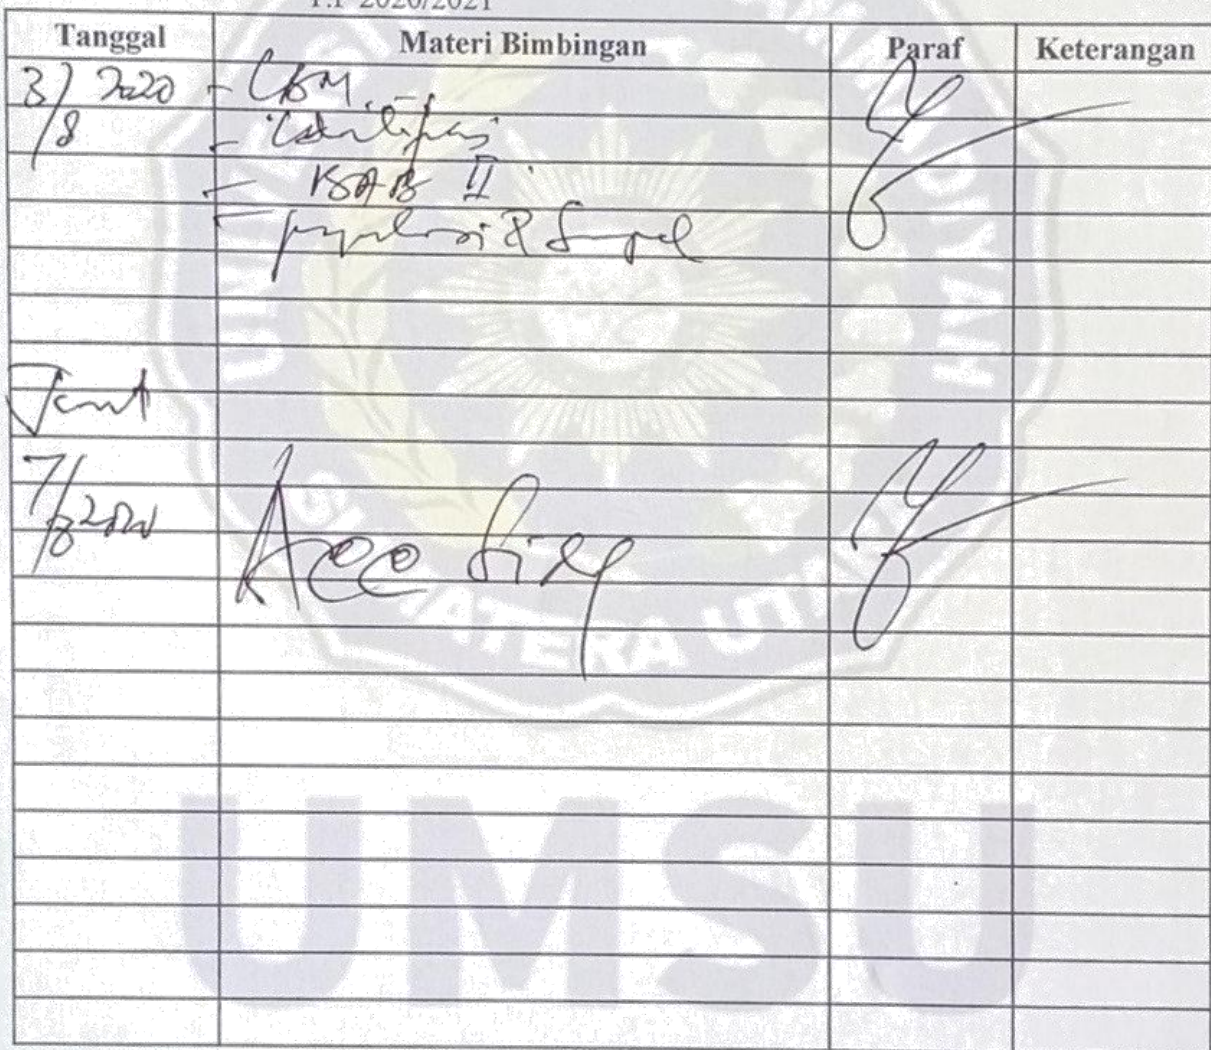 T.P 2020/2021
Tanggal Materi Bimbingan Paraf Keterangan
3/8 2020 - LBM
- identifikasi
- BAB II
- populasi & Sampel
7/8 2020 Acc
UMSU